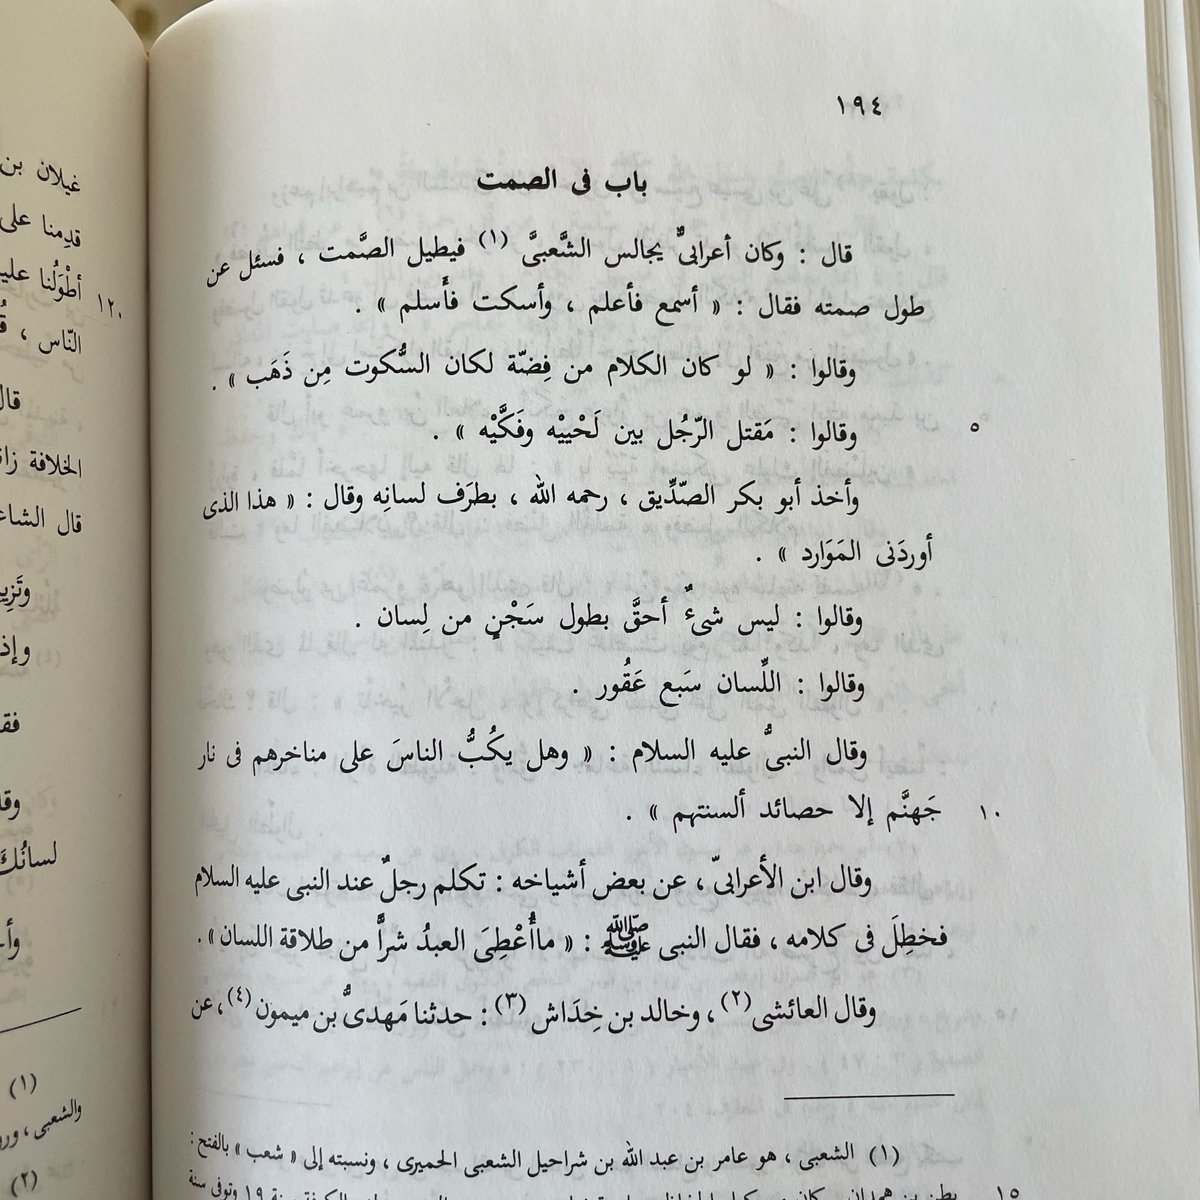 ١٩٤
باب فى الصمت
قال : وكان أعرابىٌّ يجالس الشَّعبىَّ (١) فيطيل الصَّمت ، فسئل عن
طول صمته فقال : « أسمع فأعلم ، وأسكت فأَسلم » .
وقالوا : « لو كان الكلام من فِضّة لكان السُّكوت مِن ذَهَب » .
وقالوا : مَقتل الرّجُل بين لَحْييْه وفَكَّيْه » .
٥
وأخذ أبو بكر الصّدِّيق ، رحمه الله ، بطرَف لسانِه وقال : « هذا الذى
أوردَنى المَوَارد » .
وقالوا : ليس شىءٌ أحقَّ بطول سَجْنٍ من لِسان .
وقالوا : اللِّسان سَبع عَقُور .
وقال النبىُّ عليه السلام : « وهل يكُبُّ الناسَ على مناخرهم فى نار
جَهنَّم إلا حصائد ألسنتهم » .
١٠
وقال ابن الأعرابىّ ، عن بعض أشياخه : تكلم رجلٌ عند النبى عليه السلام
فخطِلَ فى كلامه ، فقال النبى ﷺ : « ماأُعْطِىَ العبدُ شراًّ من طلاقة اللسان» .
وقال العائشى(٢) ، وخالد بن خِدَاش (٣) : حدثنا مَهدىُّ بن ميمون(٤) ، عن
(١) الشعبى ، هو عامر بن عبد الله بن شراحيل الشعبى الحميرى ، ونسبته إلى « شعب » بالفتح :
١٥
غيلان بن
قدِمنا على
أطْوَلُنا
١٢٠
النّاس ،
قال
الخلافة
قال
لسانُكَ
(١)
والشعبى ،
(٢)